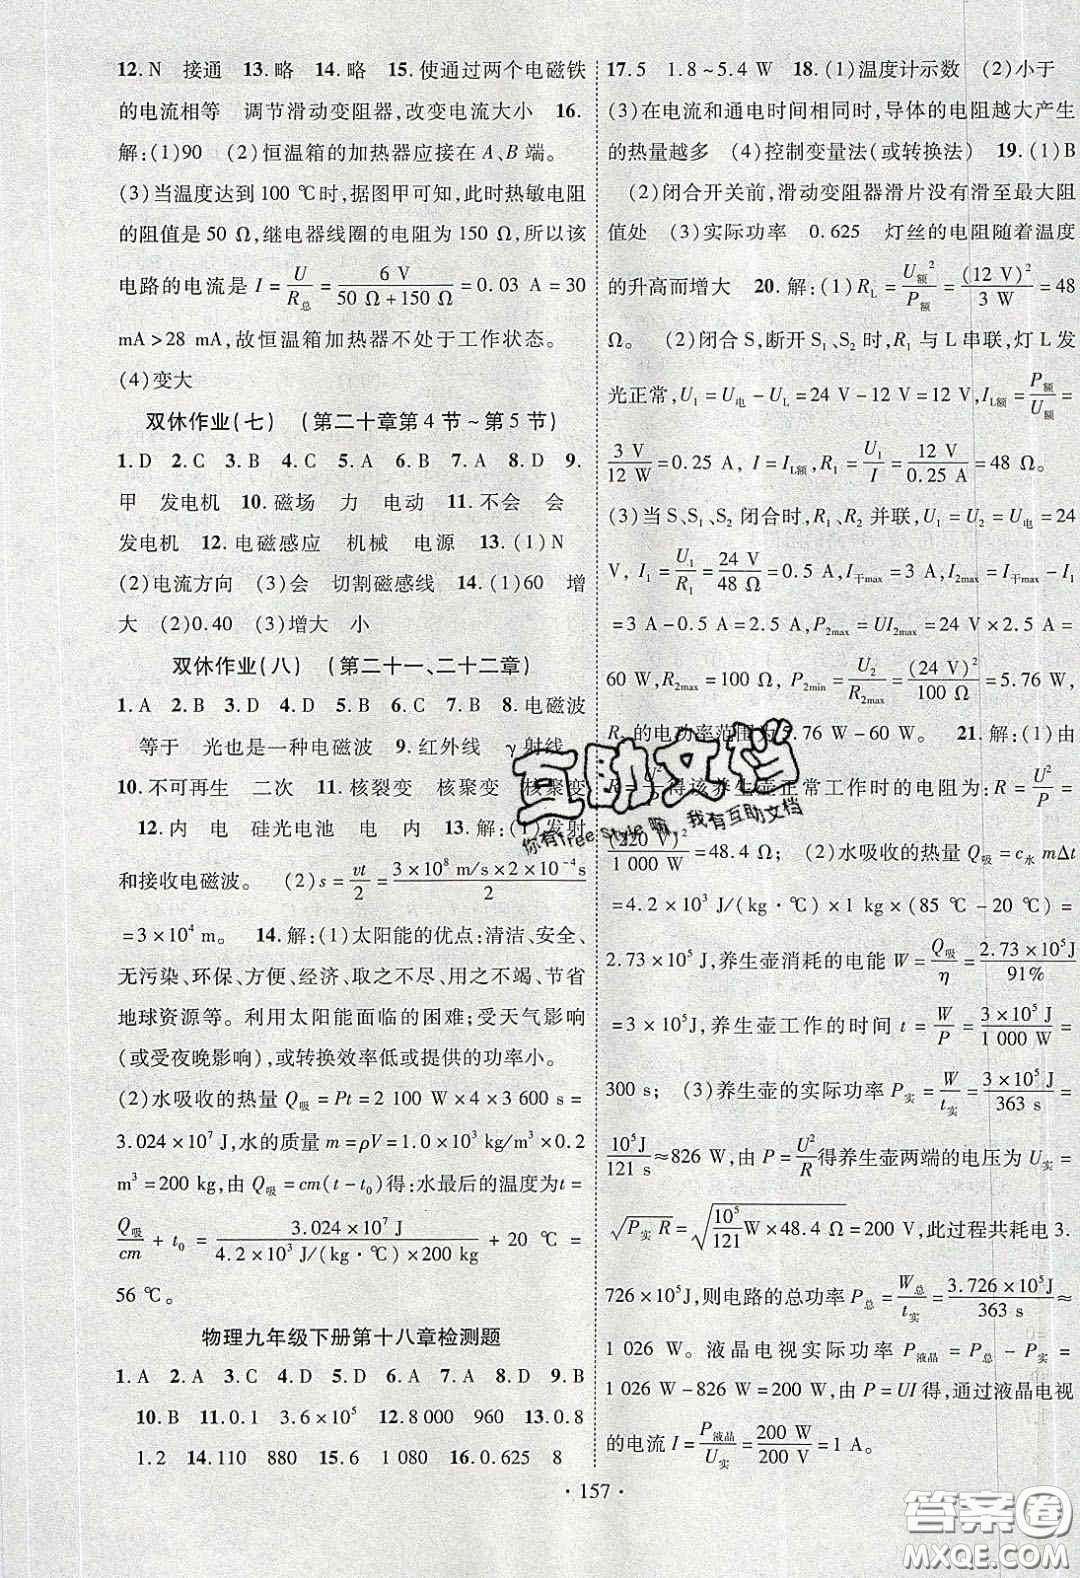 12.N 接通 13.略 14.略 15.使通过两个电磁铁
的电流相等 调节滑动变阻器,改变电流大小 16.
解:(1)90 (2)恒温箱的加热器应接在A、B端。
(3)当温度达到100 ℃时,据图甲可知,此时热敏电阻
的阻值是50 Ω,继电器线圈的电阻为150 Ω,所以该
电路的电流是I=U/R总=6 V/(50 Ω+150 Ω)=0.03 A=30
mA>28 mA,故恒温箱加热器不处于工作状态。
(4)变大
双休作业(七) (第二十章第4节~第5节)
1.D 2.C 3.B 4.D 5.A 6.B 7.A 8.D 9.
甲 发电机 10.磁场 力 电动 11.不会 会
发电机 12.电磁感应 机械 电源 13.(1)N
(2)电流方向 (3)会 切割磁感线 14.(1)60 增
大 (2)0.40 (3)增大 小
双休作业(八) (第二十一、二十二章)
1.A 2.B 3.D 4.B 5.B 6.C 7.B 8.电磁波
等于 光也是一种电磁波 9.红外线 γ射线
10.不可再生 二次 11.核裂变 核聚变 核聚变
12.内 电 硅光电池 电 内 13.解:(1)发射
和接收电磁波。 (2)s=vt/2=(3×10⁸ m/s×2×10⁻⁴s)/2
=3×10⁴ m。 14.解:(1)太阳能的优点:清洁、安全、
无污染、环保、方便、经济、取之不尽、用之不竭、节省
地球资源等。利用太阳能面临的困难;受天气影响
(或受夜晚影响),或转换效率低或提供的功率小。
(2)水吸收的热量Q吸=Pt=2 100 W×4×3 600 s=
3.024×10⁷ J,水的质量m=ρV=1.0×10³ kg/m³×0.2
m³=200 kg,由Q吸=cm(t-t₀)得:水最后的温度为t=
Q吸/cm+t₀=3.024×10⁷ J/(4.2×10³ J/(kg·℃)×200 kg)+20 ℃=
56 ℃。
物理九年级下册第十八章检测题
1.A 2.A 3.C 4.D 5.D 6.A 7.B 8.D 9.B
10.B 11.0.1 3.6×10⁵ 12.8 000 960 13.0.8
1.2 14.110 880 15.6 1 080 16.0.625 8
17.5 1.8~5.4 W 18.(1)温度计示数 (2)小于
(3)在电流和通电时间相同时,导体的电阻越大产生
的热量越多 (4)控制变量法(或转换法) 19.(1)B
(2)闭合开关前,滑动变阻器滑片没有滑至最大阻
值处 (3)实际功率 0.625 灯丝的电阻随着温度
的升高而增大 20.解:(1)R_L=U额²/P额=(12 V)²/3 W=48
Ω。 (2)闭合S,断开S₁、S₂时,R₁与L串联,灯L发
光正常,U₁=U电-U_L=24 V-12 V=12 V,I_L额=P额/U额=
3 V/12 W=0.25 A,I=I_L额,R₁=U₁/I=12 V/0.25 A=48 Ω。
(3)当S、S₁、S₂闭合时,R₁、R₂并联,U₁=U₂=U电=24
V,I₁=U₁/R₁=24 V/48 Ω=0.5 A,I干max=3 A,I₂max=I干max-I₁
=3 A-0.5 A=2.5 A,P₂max=UI₂max=24 V×2.5 A=
60 W,R₂max=100 Ω,P₂min=U₂/R₂max=(24 V)²/100 Ω=5.76 W,
的电功率范围为5.76 W-60 W。 21.解:(1)由
得该养生壶正常工作时的电阻为:R=U²/P=
(220 V)²/1 000 W=48.4 Ω; (2)水吸收的热量Q吸=c水mΔt
=4.2×10³ J/(kg·℃)×1 kg×(85 ℃-20 ℃)=
2.73×10⁵ J,养生壶消耗的电能W=Q吸/η=2.73×10⁵J/91%
=3×10⁵ J,养生壶工作的时间t=W/P=3×10⁵ J/1 000 W=
300 s; (3)养生壶的实际功率P实=W/t实=3×10⁵ J/363 s=
10⁵J/121 s≈826 W,由P=U²/R得养生壶两端的电压为U实=
√(P实 R)=√(10⁵/121 W×48.4 Ω)=200 V,此过程共耗电3.
726×10⁵J,则电路的总功率P总=W总/t实=3.726×10⁵J/363 s≈
1 026 W。液晶电视实际功率P液晶=P总-P实=
1 026 W-826 W=200 W,由P=UI得,通过液晶电视
的电流I=P液晶/U实=200 W/200 V=1 A。
互助文档
你有free style嘛,我有互助文档
·157·
答案圈
MXQE.COM